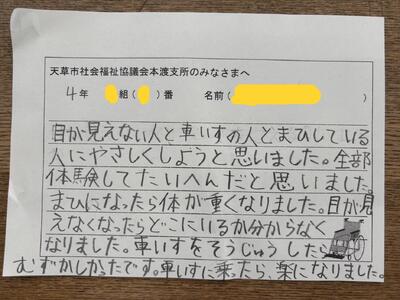 天草市社会福祉協議会本渡支所のみなさまへ
4年 組( )番 名前( )
目が見えない人と車いすの人とまひしている
人にやさしくしようと思いました。全部
体験してたいへんだと思いました。
まひになったら体が重くなりました。目が見
えなくなったらどこにいるか分からなく
なりました。車いすをそうじゅうしたら
むずかしかったです。車いすに乗ったら、楽になりました。